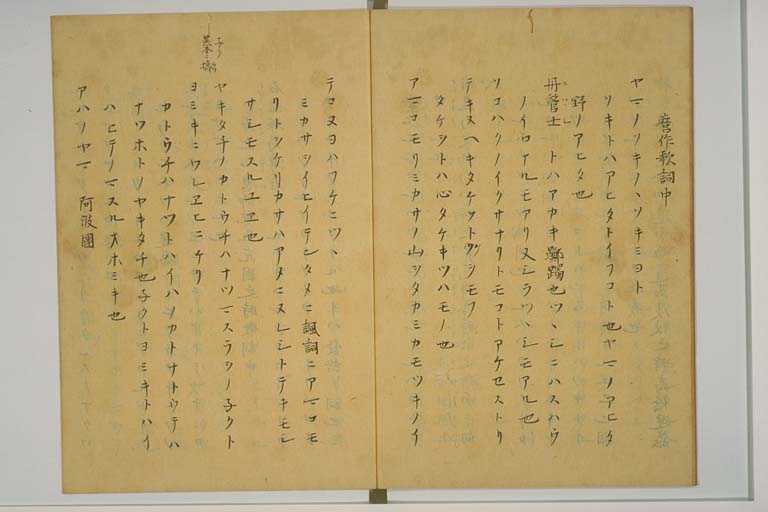 麿作歌詞中
ヤマノソキノハソキミヨト
ソキトハアヒタトイフコト也ヤマノアヒタ
野ノアヒタ也
丹管士 トハアカキ躑躅也ツヽシニハスハウ
ノイロナルモアリ又シラツヽシモアル也
ツコハクノイクサナリトモコトアケセストリ
テキヌヘキタケヲトヅシモフ
タケヲトハ心タケキツハモノ也
アマコモリミカサノ山ヲタカミカモツキノイ
テコヌヨハフケニツヽ
ミカサヲイヒイテンタメニ諷詞ニアマコモ
リトツケリカサハアタニヌレシトテキモシ
サシモスルユヱ也
ヤキタチノカトウチハナツマスラヲノ子クト
ヨミキニワレヱヒニケリ
カトウチハナツトハイハソカトナトウテハ
ナツホトノヤキタチ也子クトヨミキトハイ
ハヒテノマスルオホミキ也
アハノヤマ 阿波國